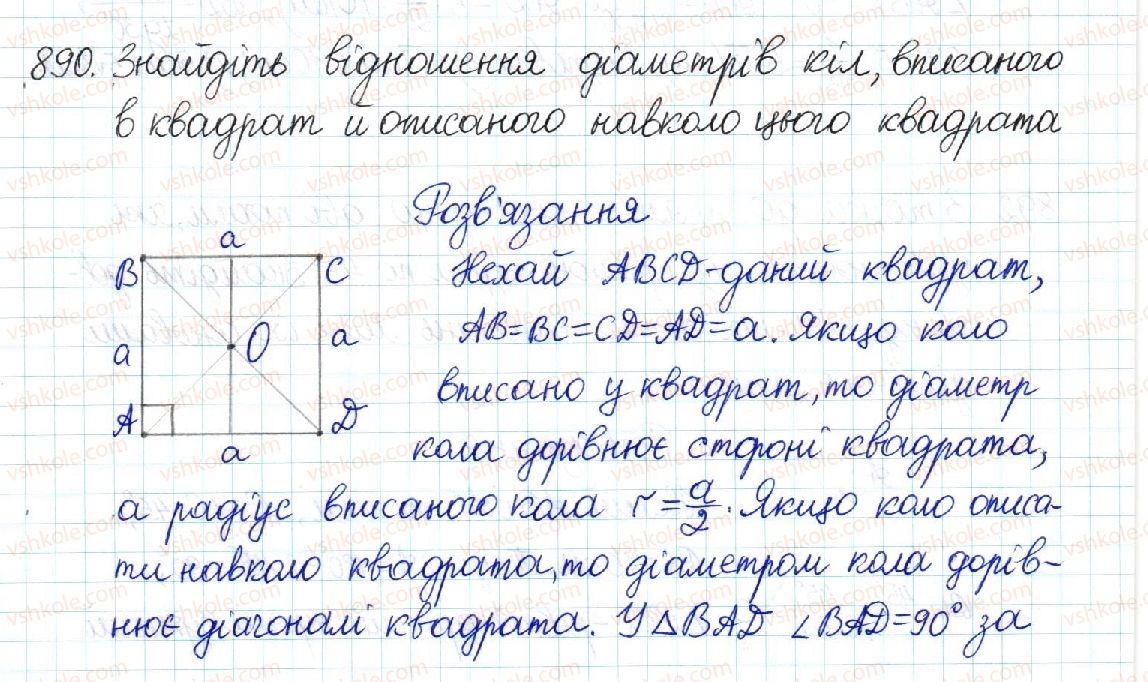 890. Знайдіть відношення діаметрів кіл, вписаного
в квадрат й описаного навколо цього квадрата
Розв'язання
a
B
C
a
O
a
A
D
a
Нехай ABCD-даний квадрат,
AB=BC=CD=AD=a. Якщо коло
вписано у квадрат, то діаметр
кола дорівнює стороні квадрата,
а радіус вписаного кола r=a/2. Якщо коло описа-
ти навколо квадрата, то діаметром кола дорів-
нює діагоналі квадрата. У △BAD ∠BAD=90° за
vshkole.com